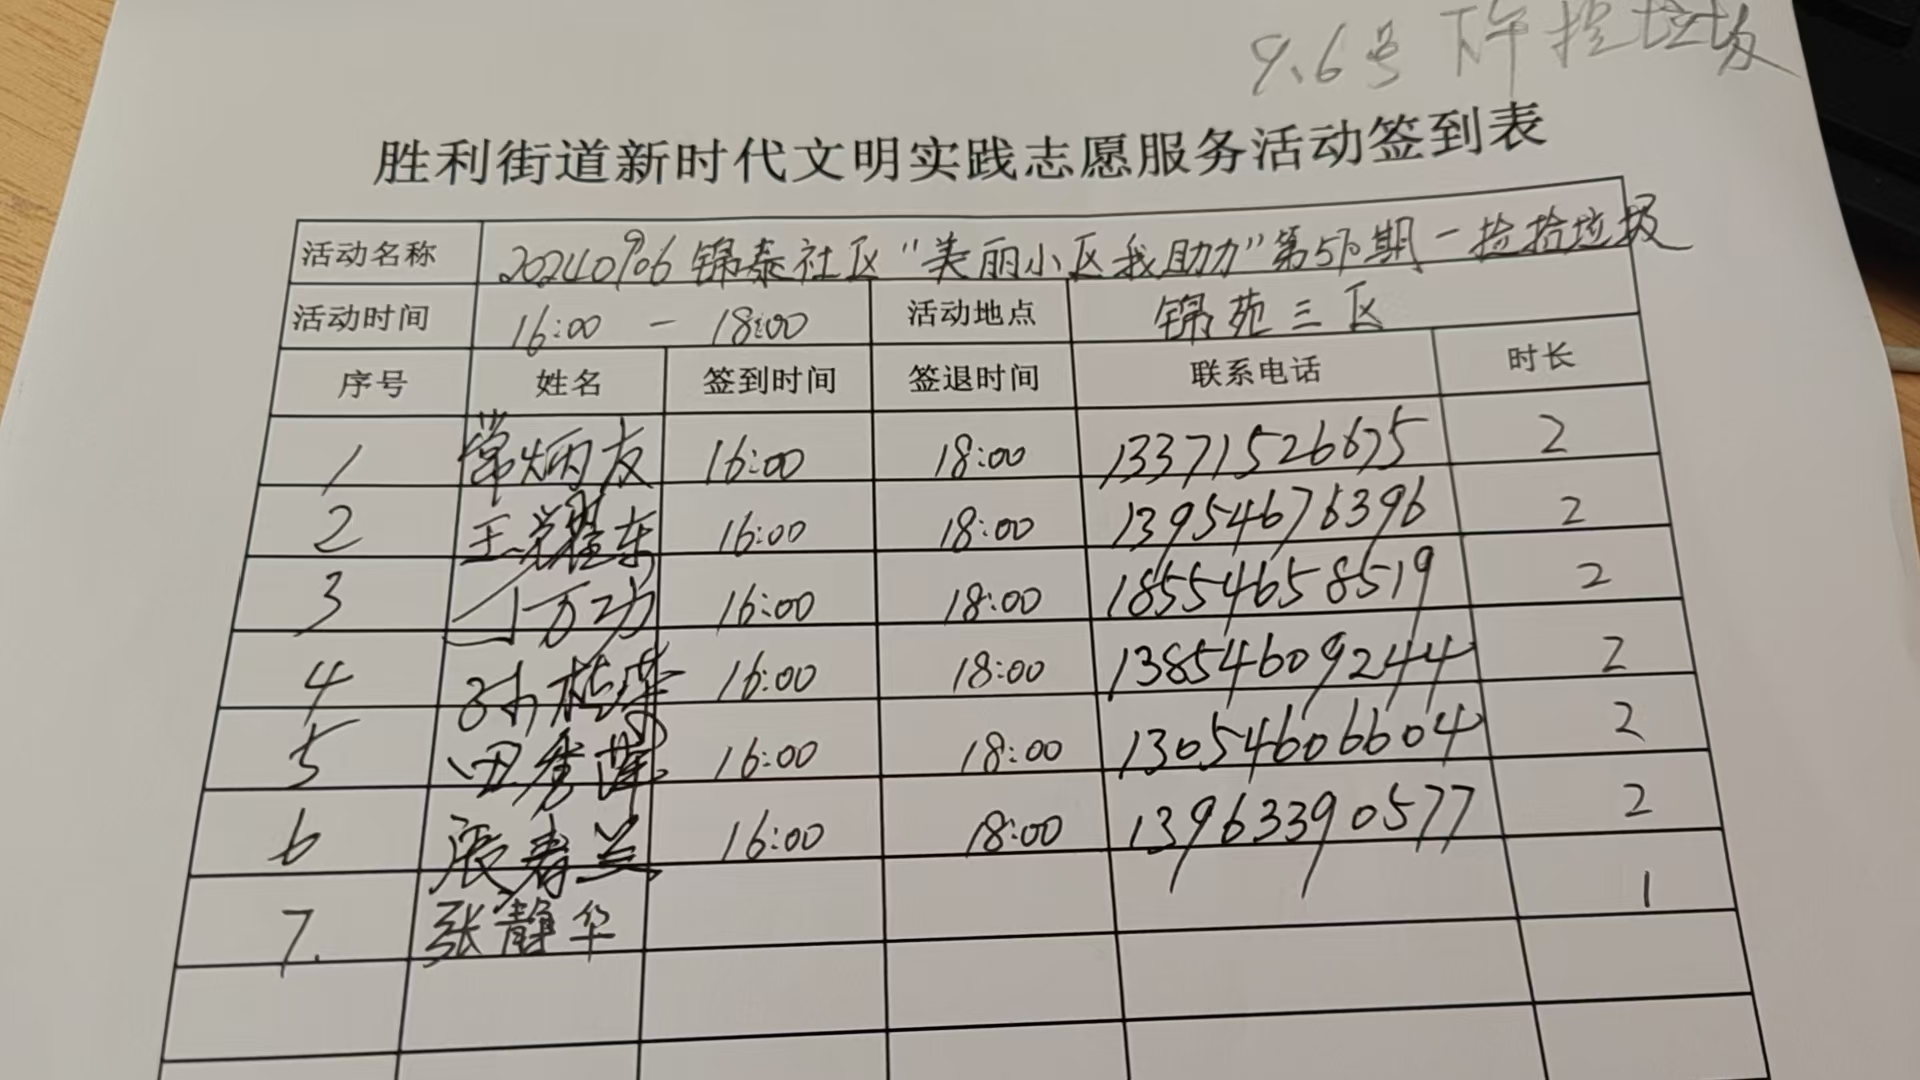 9.6号下午捡垃圾
胜利街道新时代文明实践志愿服务活动签到表
活动名称 20240906锦泰社区“美丽小区我助力”第57期-捡拾垃圾
活动时间 16:00 - 18:00 活动地点 锦苑三区
序号 姓名 签到时间 签退时间 联系电话 时长
1 常炳友 16:00 18:00 13371526675 2
2 王耀东 16:00 18:00 13954676396 2
3 万功 16:00 18:00 18554658519 2
4 孙桂 16:00 18:00 13854609244 2
5 田秀莲 16:00 18:00 13054606604 2
6 张春兰 16:00 18:00 13963390577 2
7. 张静华 1